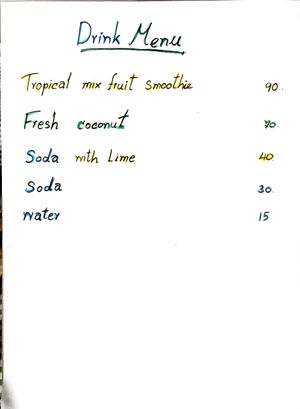 Drink Menu
Tropical mix fruit smoothie 90.
Fresh coconut 70.
Soda with Lime 40
Soda 30.
Water 15